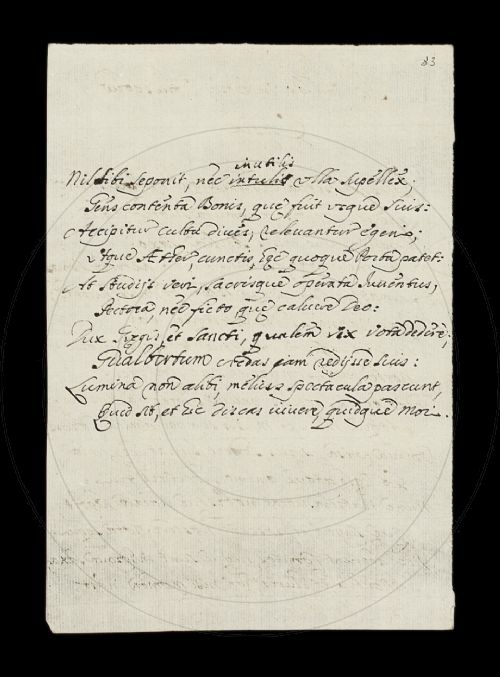 83
inutilis
Nil sibi seponit, nec intulit ulla supellex;
Gens contenta Bonis, quę fuit usque suis:
Accipitur cultu dives, relevantur egeni;
Utque Æther, cunctis, hęc quoque Porta patet:
At studijs veri, sacrisque operata Iuventus,
Pectora, nec ficto quę caluere Deo:
Dux Gregis et Sancti, qualem vix vota
Gualbertum credas jam redijsse suis:
Lumina non alibi, melius spectacula pascunt,
Quid sit, et hic discas vivere, quidque Mori.